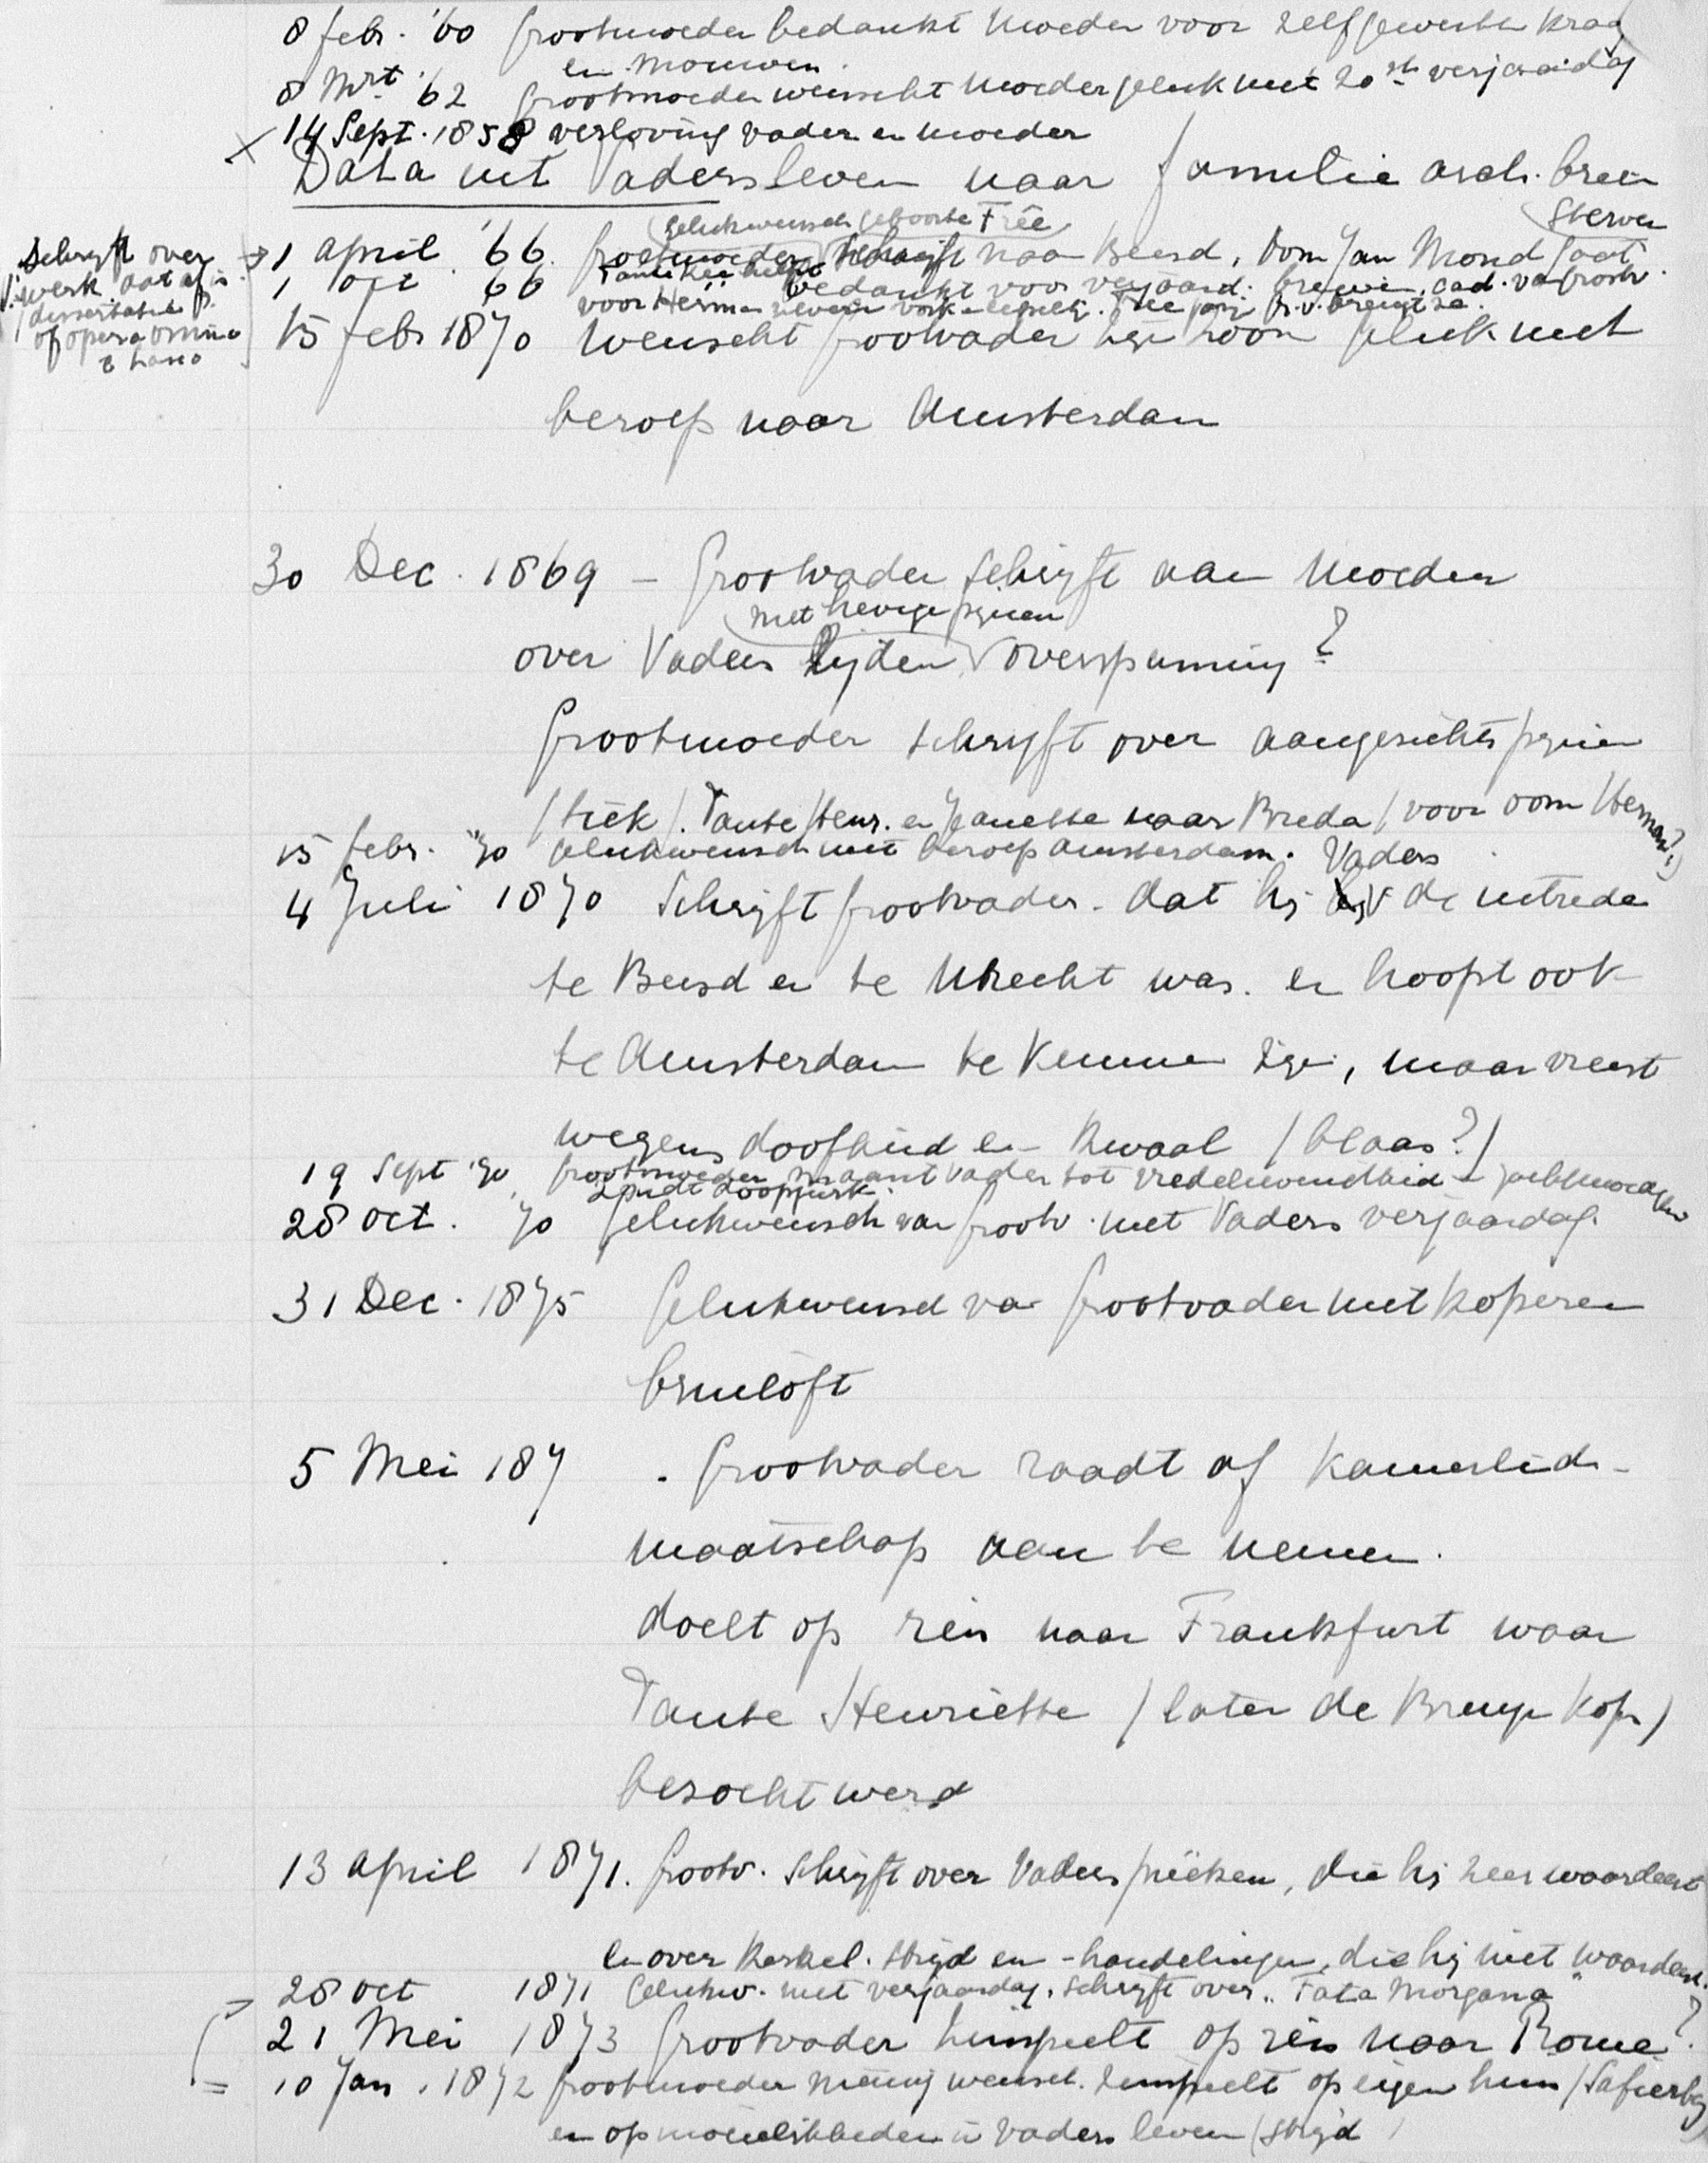 8 febr. '60 Grootmoeder bedankt Moeder voor zelfgewerkte kraag
en mouwen.
8 Mrt '62 Grootmoeder wenscht Moeder geluk met 20ste verjaardag
× 14 Sept. 1858 verloving vader en moeder
Data uit Vaders leven naar familie arch. brieven
gelukwensch geboorte Frêe
sterven
1 april '66. Grootmoeder schrijft naar Beesd, Oom Jan Mond gaat
Schrijft over
werk dat af is
dissertatie
of opera omnia
à Lasco
1 oct 66 bedankt voor verjaard. brieven, cad. va Grootv.
voor Herman
15 febr 1870 wenscht Grootvader zijn zoon geluk met
beroep naar Amsterdam
30 Dec. 1869 – Grootvader schrijft aan Moeder
met hevige pijnen
over Vaders lijden overspanning?
Grootmoeder schrijft over aangezichtspijnen
/ziek/. Tante Henr. en Janette naar Breda /voor oom Herman?/
15 febr. '70 gelukwensch met beroep Amsterdam. Vaders
4 Juli 1870 Schrijft Grootvader. dat hij bij de intrede
te Beesd en te Utrecht was. en hoopt ook
te Amsterdam te kunnen zijn, maar vreest
wegens doofheid en kwaal /blaas?/
19 Sept '70 Grootmoeder maant Vader tot vredelievendheid
zendt doopjurk.
28 oct. 70 Gelukwensch van Grootv. met Vaders verjaardag.
31 Dec. 1875 Gelukwensch va Grootvader met koperen
bruiloft
5 Mei 187 . Grootvader raadt af Kamerlid-
maatschap aan te nemen.
doelt op reis naar Frankfurt waar
Tante Henriette / later de Bruyn Kops/
bezocht werd
13 april 1871. Grootv. Schrijft over Vaders preeken, die hij zeer waardeert
en over kerkel. strijd en -handelingen, die hij niet waardeert.
28 oct 1871 Gelukw. met verjaardag. schrijft over „Fata Morgana"
21 Mei 1873 Grootvader zinspeelt op reis naar Rome?
10 Jan. 1872 Grootmoeder nieuwj wensch. zinspeelt op eigen huis
en op moeielijkheden in Vaders leven (strijd)